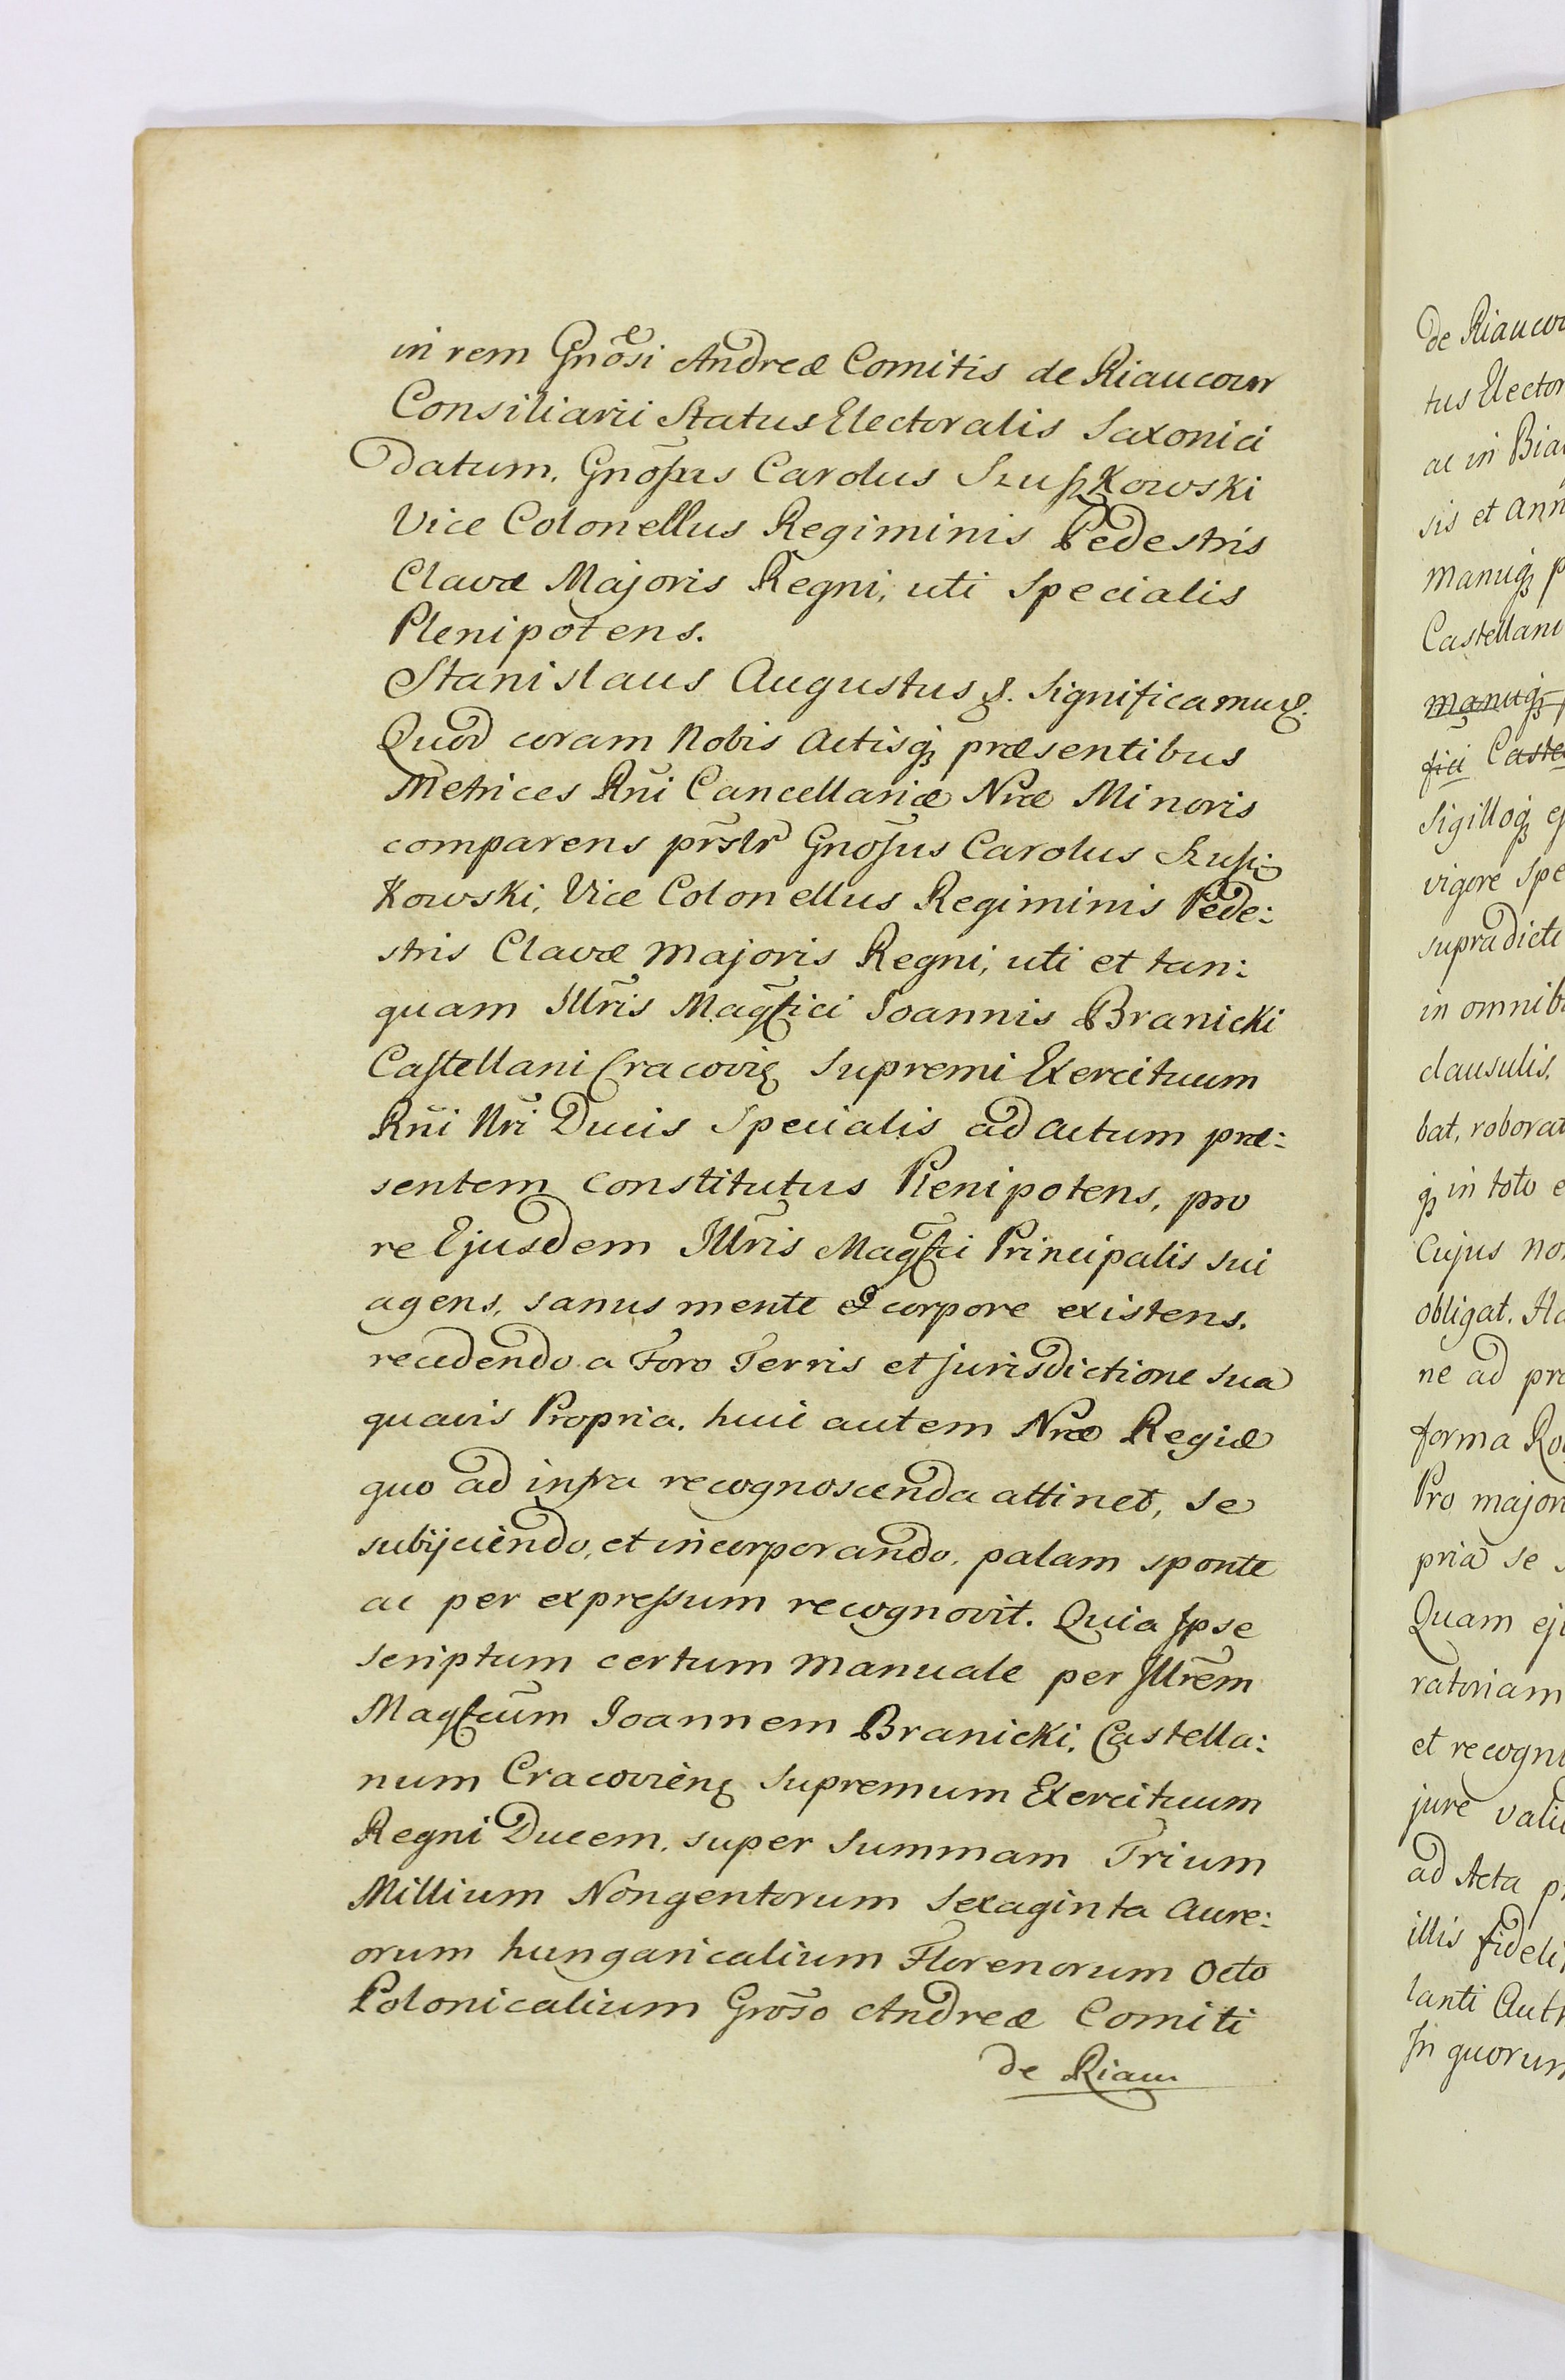 in rem Gnõsi Andreæ Comitis de Riaucour
Consiliarii Status Electoralis Saxonici
Datum. Gnõsus Carolus Szuszkowski
Vice Colonellus Regiminis Pedestris
Clavæ Majoris Regni, uti Specialis
Plenipotens.
Stanislaus Augustus &. Significamus &.
Quod coram Nobis Actisq; præsentibus
Metrices Rñi Cancellariæ Nræ Minoris
comparens prslr Gnosus Carolus Szusz:
Kowski, Vice Colonellus Regiminis Pede:
stris Clavæ Majoris Regni, uti et tan:
quam Illris Magfici Joannis Branicki
Castellani Cracovię Supremi Exercituum
Rñi Nri Ducis Specialis ad Actum præ:
sentem Constitutus Plenipotens, pro
re Ejusdem Illris Magfci Principalis sui
agens, sanus mente & corpore existens.
recedendo a Foro Terris et jurisdictione sua
quavis Propria. huic autem Nræ Regiæ
quo ad infra recognoscenda attinet, se
subijciendo, et incorporando, palam sponte
ac per expressum recognovit. Quia Ipse
scriptum certum manuale per Illrem
Magfcum Joannem Branicki, Castella:
num Cracovieng Supremum Exercituum
Regni Ducem, super Summam Trium
Millium Nongentorum Sexaginta Aure:
orum hungaricalium Florenorum Octo
Polonicalium Groso Andreæ Comiti
de Riau
de Riaucou
tus Elector
ac in Bia
sis et Ann
manuq; p
Castellani
manuq;
fici Caste
Sigilloq; ej
vigore Spe
supra dicti
in omnib
clausulis,
bat, roborat
q; in toto e
Cujus no
obligat. Ha
ne ad pr
forma Ro
Pro major
pria se s
Quam ej
ratoriam
et recogni
jure vali
ad Acta p
illis fideli
lanti Auth
In quorum